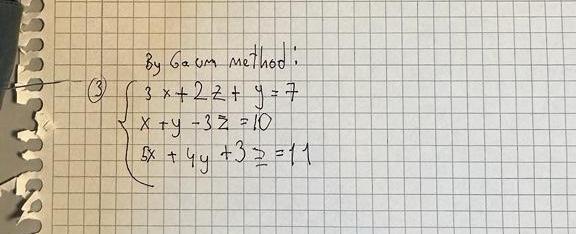 By Gaum method:
③ 3x+2z+y=7
x+y-3z=10
5x+4y+3z=11